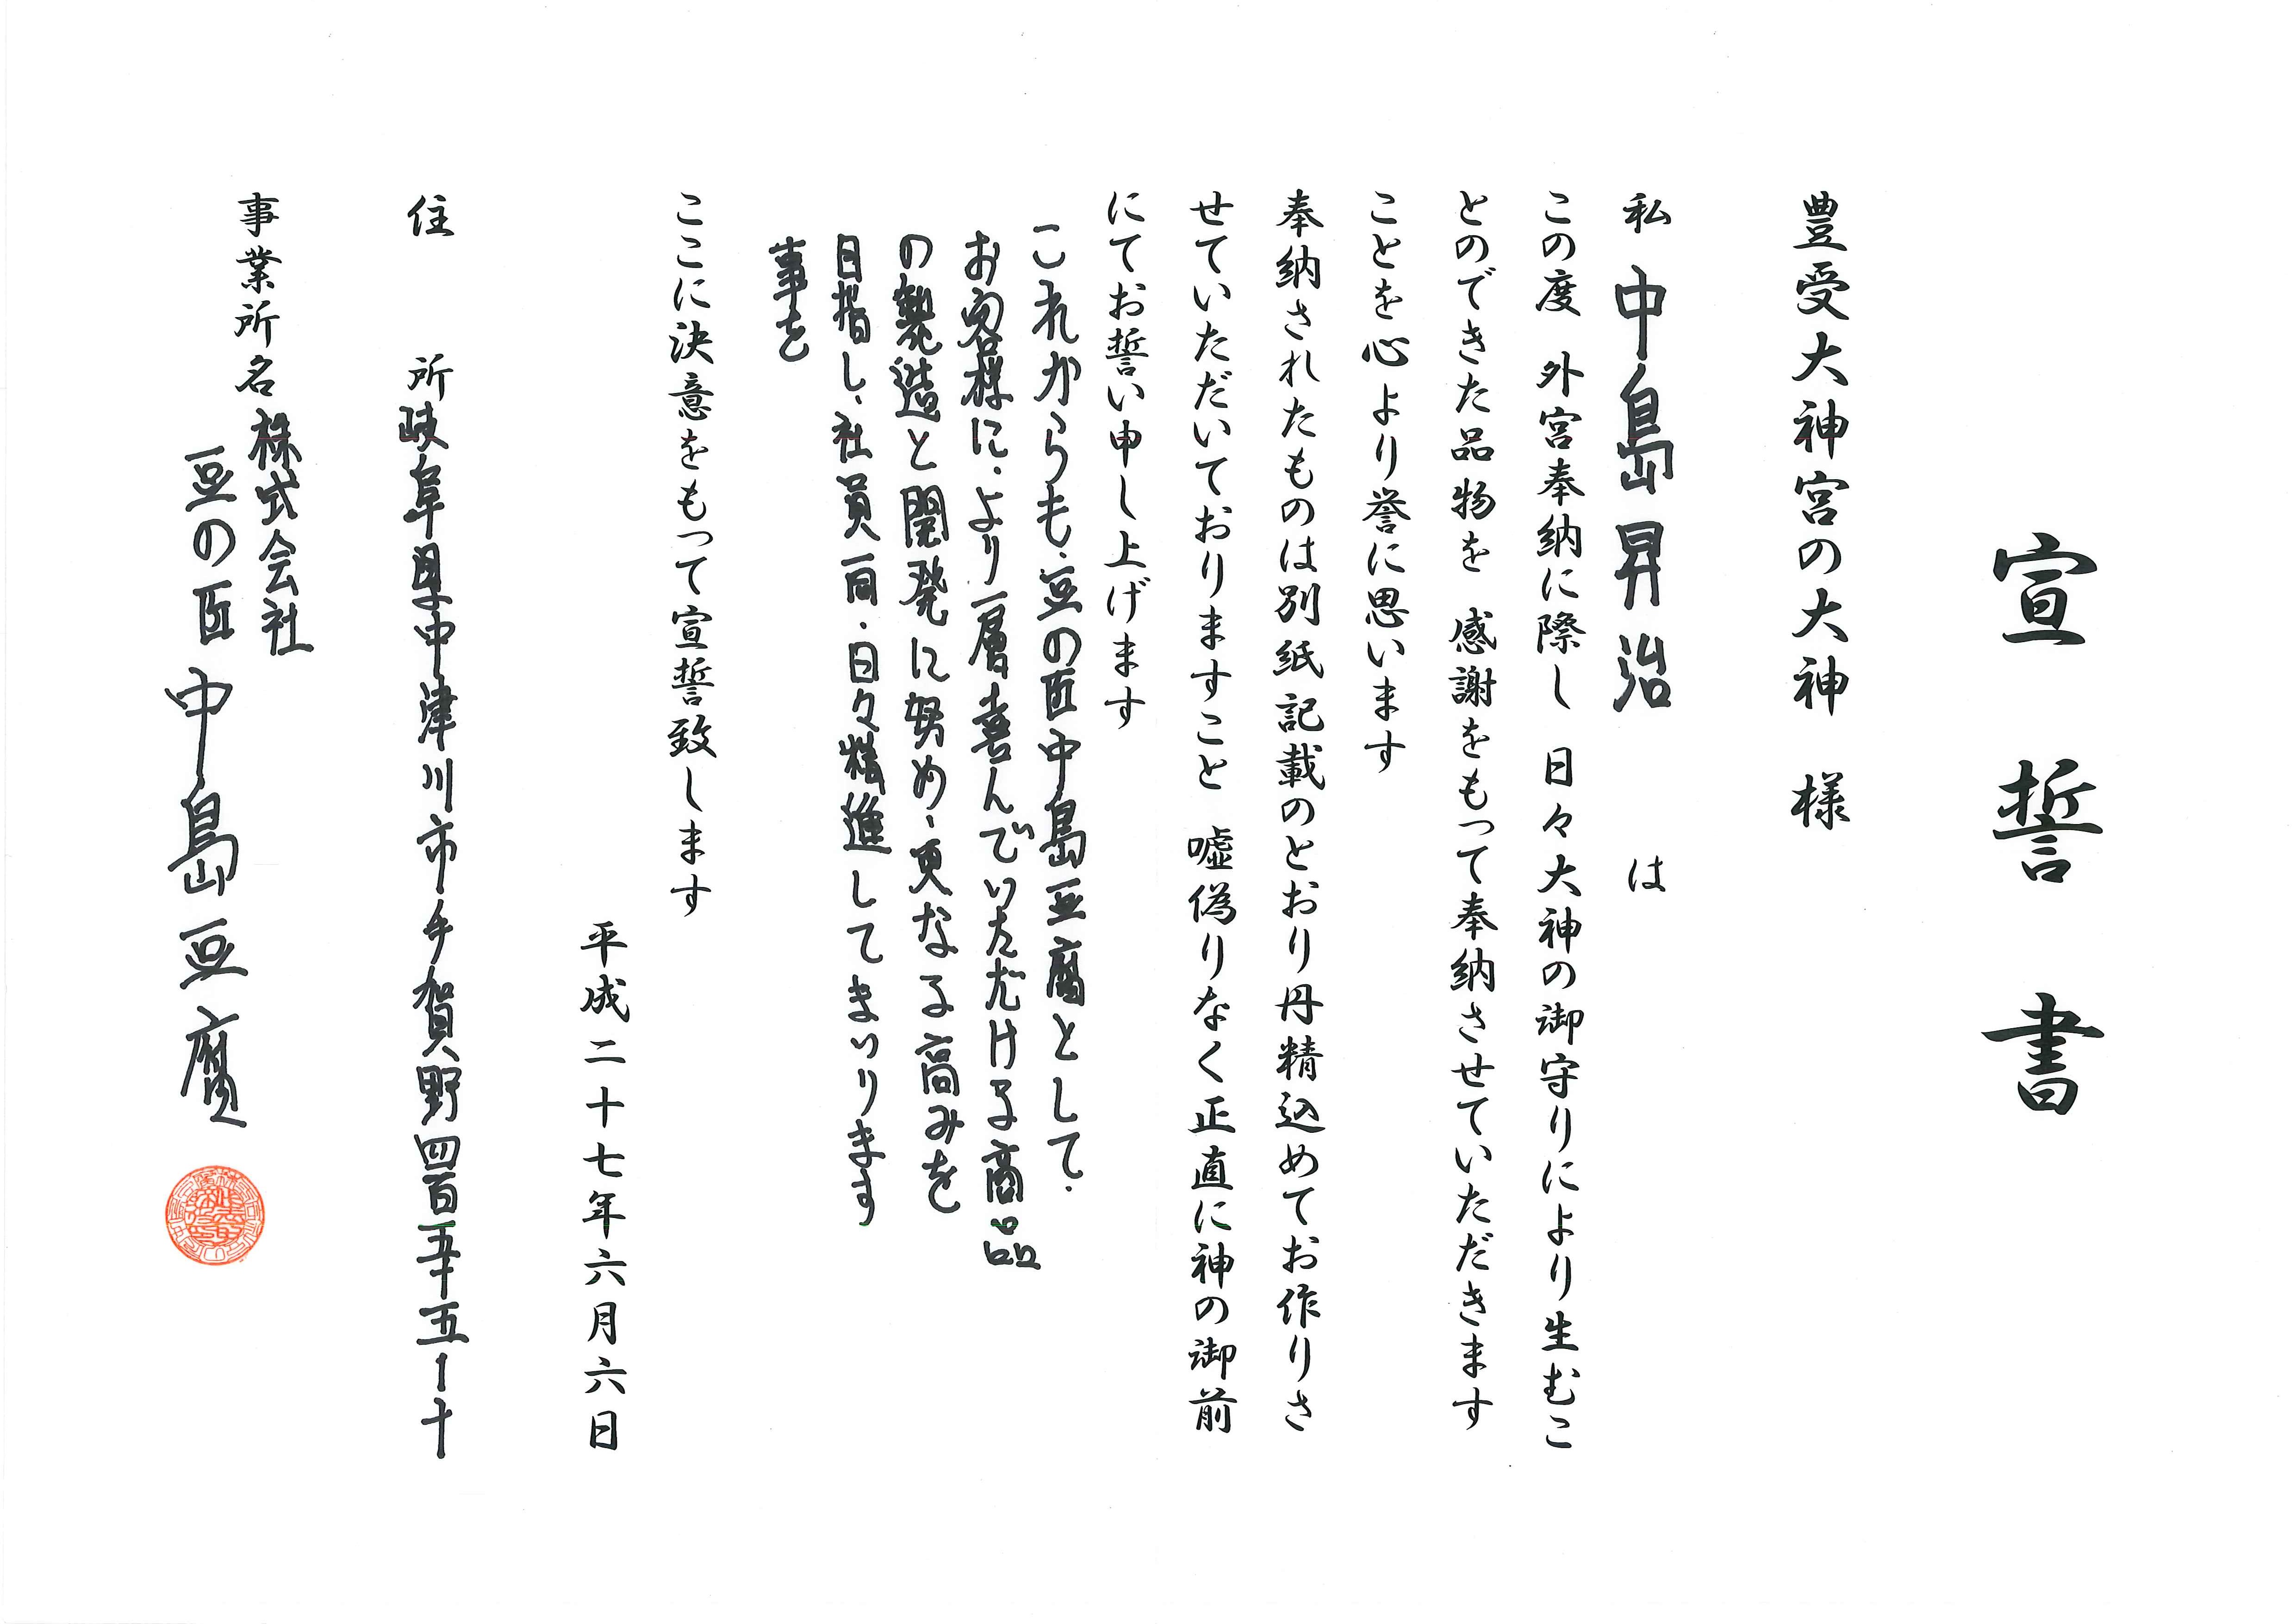 宣誓書
豊受大神宮の大神 様
私 中島昇治 は
この度 外宮奉納に際し 日々大神の御守りにより生むこ
とのできた品物を 感謝をもって奉納させていただきます
ことを心より誉に思います
奉納されたものは別紙記載のとおり丹精込めてお作りさ
せていただいておりますこと 嘘偽りなく正直に神の御前
にてお誓い申し上げます
これからも、豆の匠中島豆腐として、
お客様に、より一層喜んでいただける商品
の製造と開発に努め、更なる高みを
目指し、社員一同、日々精進してまいります
事を
ここに決意をもって宣誓致します
平成二十七年六月六日
住 所 岐阜県中津川市手賀野四百五十五ー十
事業所名 株式会社
豆の匠 中島豆腐